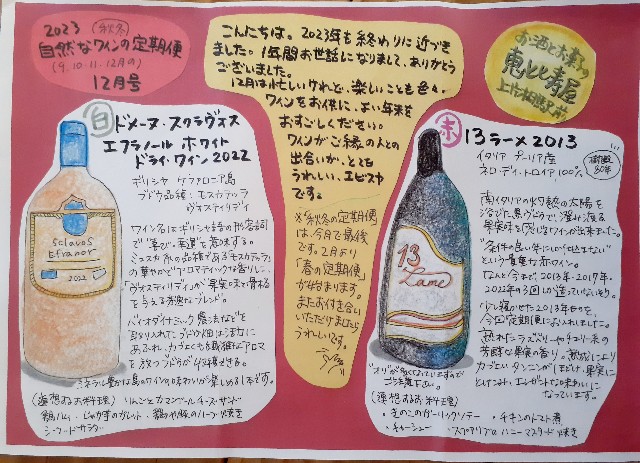 2023 秋冬
自然なワインの定期便
(9.10.11.12月の)
12月号
こんにちは。2023年も終わりに近づき
ました。1年間お世話になりまして、ありがとう
ございました。
12月は忙しいけれど、楽しいことも色々。
ワインをお供に、よい年末を
おすごしください。
ワインがご縁の人との
出会いが、とても
うれしい、エビスヤ
です。
※秋冬の定期便
は、今月で最後
です。2月より
「春の定期便」
が始まります。
またお付き合い
いただけましたら
うれしいです。
お酒とお菓子の
恵比寿屋
白
ドメーヌ・スクラヴォス
エフラノール ホワイト
ドライ・ワイン 2022
ギリシャ ケファロニア島
ブドウ品種:モスカテッラ
ヴォスティリディ
ワイン名はギリシャ語の形容詞
で"喜び・幸運"を意味する。
ミュスカ系の品種であるモスカテッラ
の華やかでアロマティックな香りに、
「ヴォスティリディ」が果実味と骨格
を与える秀逸なブレンド。
バイオダイナミック農法などを
取り入れたブドウ畑は活力に
あふれ、カゴ
ミネラル豊かな島のワインの味わいが楽しめる1本です。
(連想するお料理)りんごとカマンベールチーズ・サンド
鶏ハム・じゃがいものガレット・鶏や豚のハーブ焼き
シーフードサラダ
sclavos
Efranor
2022
赤
13ラーメ2013
イタリア プーリア産
ネロ・ディ・トロイア 100%
樹齢
80年
南イタリアの灼熱の太陽を
浴びた黒ブドウで、溢れ濃る
果実味を感じるワインが出来ました。
"条件の良い年にしか仕込まない"
という貴重な赤ワイン。
なんと今まで、2013年・2017年・
2022年の3回しか造っていないそう。
少し寝かせた2013年のものを、
今回定期便にお入れしました。
熟れたラズベリーやチェリー系の
芳醇な果実の香り。熟成により
カカオとタンニンがしまとけ、果実に
とけこみ、エレガントな味わいに
なっています。
13
Lame
"オリ"が多く出ていますので
ご注意下さい。
(連想するお料理)
・きのこのガーリックソテー ・チキンのトマト煮
・チャーシュー ・スペアリブのハニーマスタード焼き